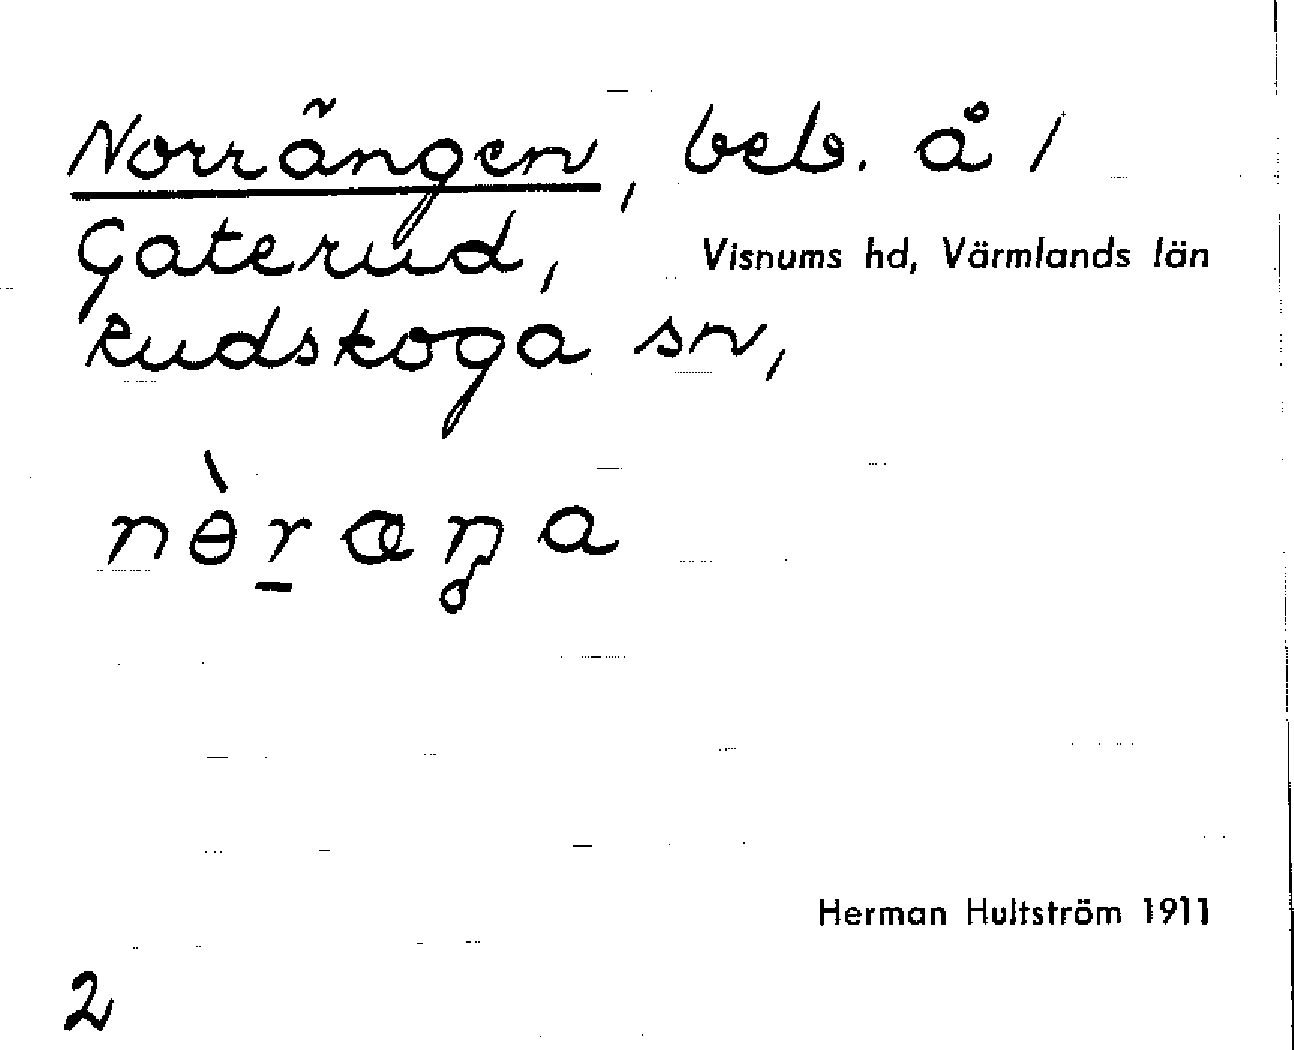 Norrängen, beb. å /
Gaterud,
Visnums hd, Värmlands län
Rudskoga sn,
nɵ̀r̲æŋa
Herman Hultström 1911
2